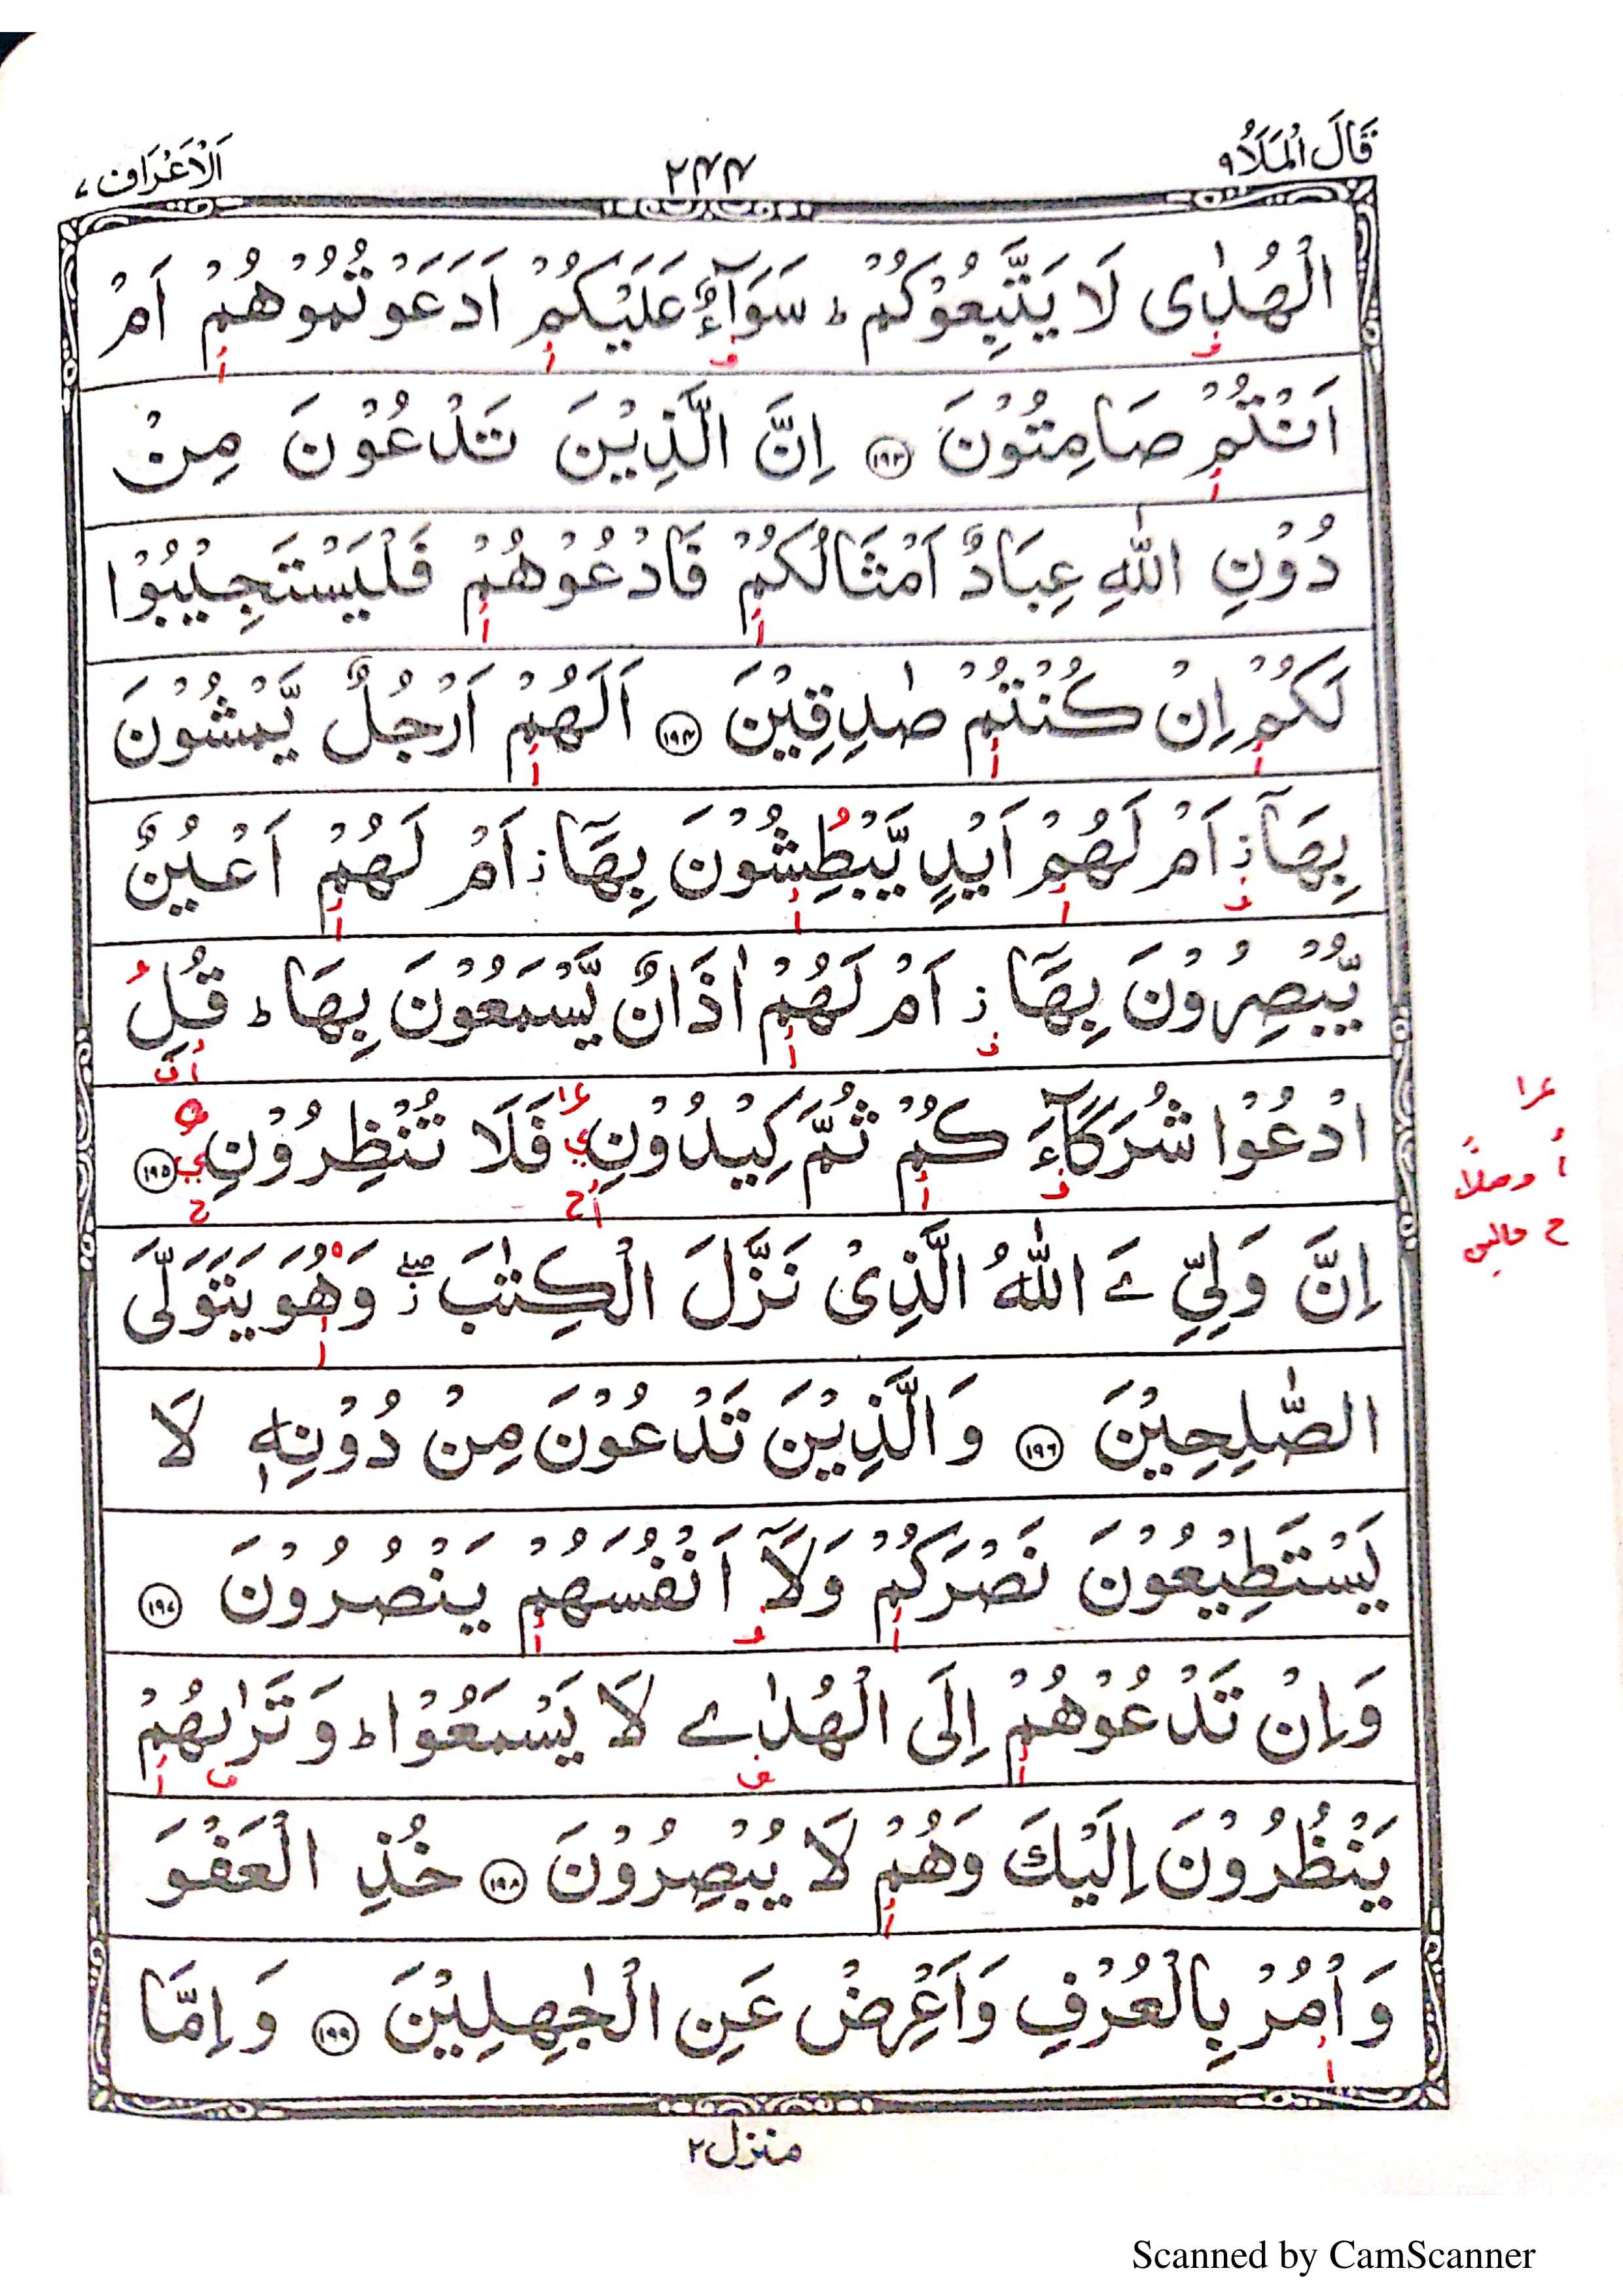 قَالَ الْمَلَاُ ٩
٢٤٤
اَلْاَعْرَاف ٧
الْهُدٰى لَا يَتَّبِعُوْكُمْ ؕ سَوَآءٌ عَلَيْكُمْ اَدَعَوْتُمُوْهُمْ اَمْ
اَنْتُمْ صَامِتُوْنَ ۝١٩٣ اِنَّ الَّذِيْنَ تَدْعُوْنَ مِنْ
دُوْنِ اللّٰهِ عِبَادٌ اَمْثَالُكُمْ فَادْعُوْهُمْ فَلْيَسْتَجِيْبُوْا
لَكُمْ اِنْ كُنْتُمْ صٰدِقِيْنَ ۝١٩٤ اَلَهُمْ اَرْجُلٌ يَّمْشُوْنَ
بِهَاۤ ؗ اَمْ لَهُمْ اَيْدٍ يَّبْطِشُوْنَ بِهَاۤ ؗ اَمْ لَهُمْ اَعْيُنٌ
يُّبْصِرُوْنَ بِهَاۤ ؗ اَمْ لَهُمْ اٰذَانٌ يَّسْمَعُوْنَ بِهَا ؕ قُلِ
ادْعُوْا شُرَكَآءَ كُمْ ثُمَّ كِيْدُوْنِ فَلَا تُنْظِرُوْنِ ۝١٩٥
اِنَّ وَلِيِّ ےَ اللّٰهُ الَّذِىْ نَزَّلَ الْكِتٰبَ ۖؗ وَهُوَ يَتَوَلَّى
الصّٰلِحِيْنَ ۝١٩٦ وَالَّذِيْنَ تَدْعُوْنَ مِنْ دُوْنِهٖ لَا
يَسْتَطِيْعُوْنَ نَصْرَكُمْ وَلَاۤ اَنْفُسَهُمْ يَنْصُرُوْنَ ۝١٩٧
وَاِنْ تَدْعُوْهُمْ اِلَى الْهُدٰے لَا يَسْمَعُوْا ؕ وَ تَرٰىهُمْ
يَنْظُرُوْنَ اِلَيْكَ وَهُمْ لَا يُبْصِرُوْنَ ۝١٩٨ خُذِ الْعَفْوَ
وَاْمُرْ بِالْعُرْفِ وَاَعْرِضْ عَنِ الْجٰهِلِيْنَ ۝١٩٩ وَاِمَّا
منزل ٢
Scanned by CamScanner